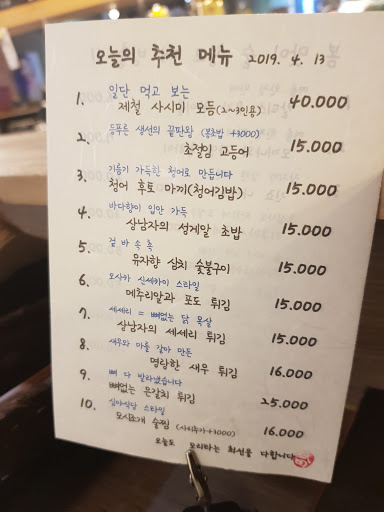 오늘의 추천 메뉴 2019. 4. 13
일단 먹고 보는
1. 제철 사시미 모듬(2~3인용) 40.000
등푸른 생선의 끝판왕 (봉초밥 +3000)
2. 초절임 고등어 15.000
기름기 가득한 청어로 만듭니다
3. 청어 후토 마끼(청어김밥) 15.000
바다향이 입안 가득
4. 상남자의 성게알 초밥 15.000
겉 바 속 촉
5. 유자향 삼치 숯불구이 15.000
오사카 신세카이 스타일
6. 메추리알과 포도 튀김 15.000
세세리 = 뼈없는 닭 목살
7. 상남자의 세세리 튀김 15.000
새우와 마를 갈아 만든
8. 명랑한 새우 튀김 16.000
뼈 다 발라냈습니다
9. 뼈없는 은갈치 튀김 25.000
심야식당 스타일
10. 모시조개 술찜 (사리추가+3000) 16.000
오늘도 모리타는 최선을 다합니다